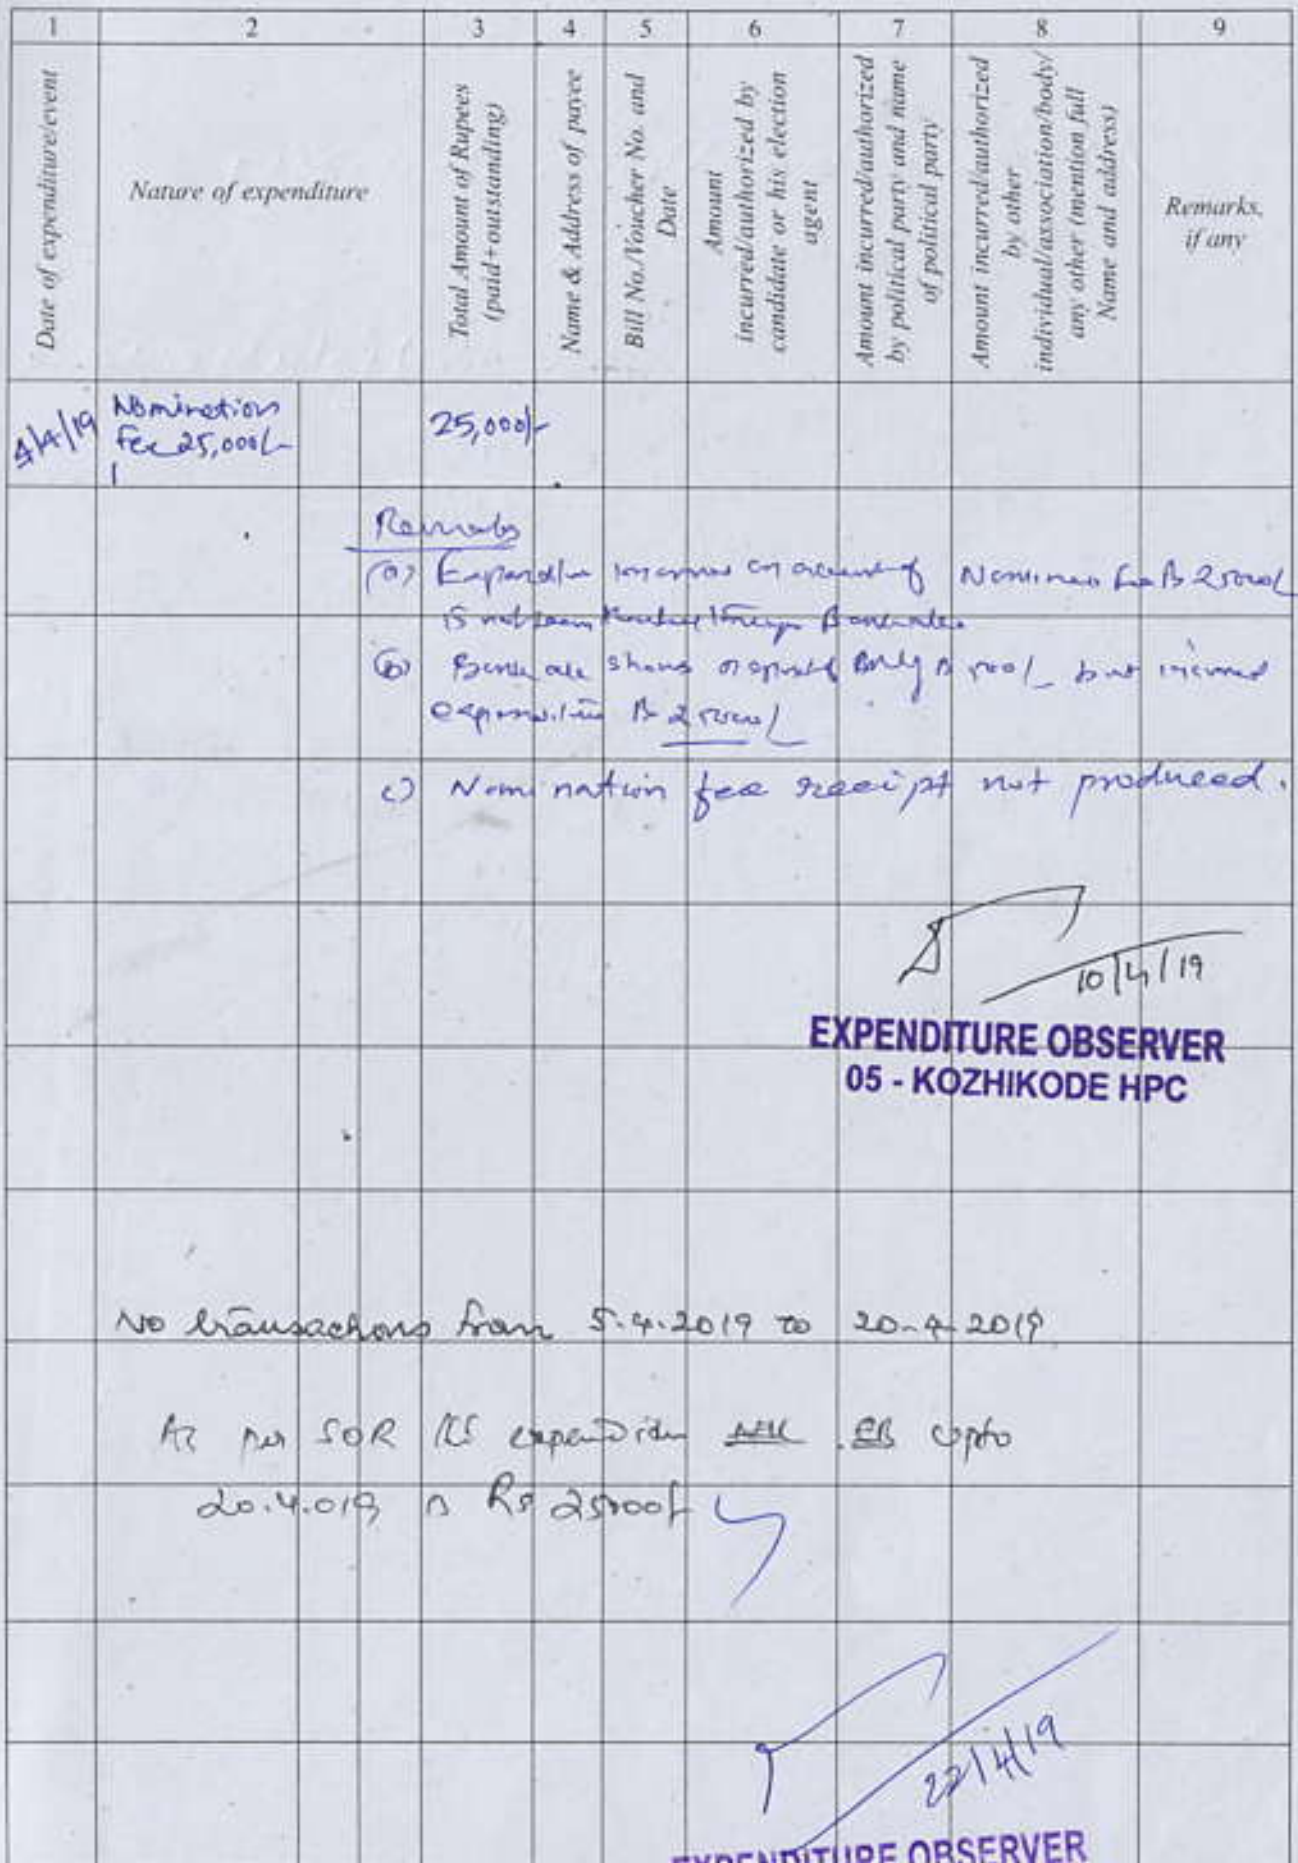 1 2 3 4 5 6 7 8 9
Date of expenditure/event
Nature of expenditure
Total Amount of Rupees
(paid+outstanding)
Name & Address of payee
Bill No./Voucher No. and
Date
Amount
incurred/authorized by
candidate or his election
agent
Amount incurred/authorized
by political party and name
of political party
Amount incurred/authorized
by other
individual/association/body/
any other (mention full
Name and address)
Remarks,
if any
4/4/19 Nomination 25,000/-
fee 25,000/-
Remarks
(a) Expenditure on account of
is not
(b) shows but incurred
c) Nomination fee receipt not produced.
10/4/19
EXPENDITURE OBSERVER
05 - KOZHIKODE HPC
No transactions from 5.4.2019 to 20-4-2019
As per SOR expenditure upto
20.4.019 is Rs 25000/-
22/4/19
EXPENDITURE OBSERVER